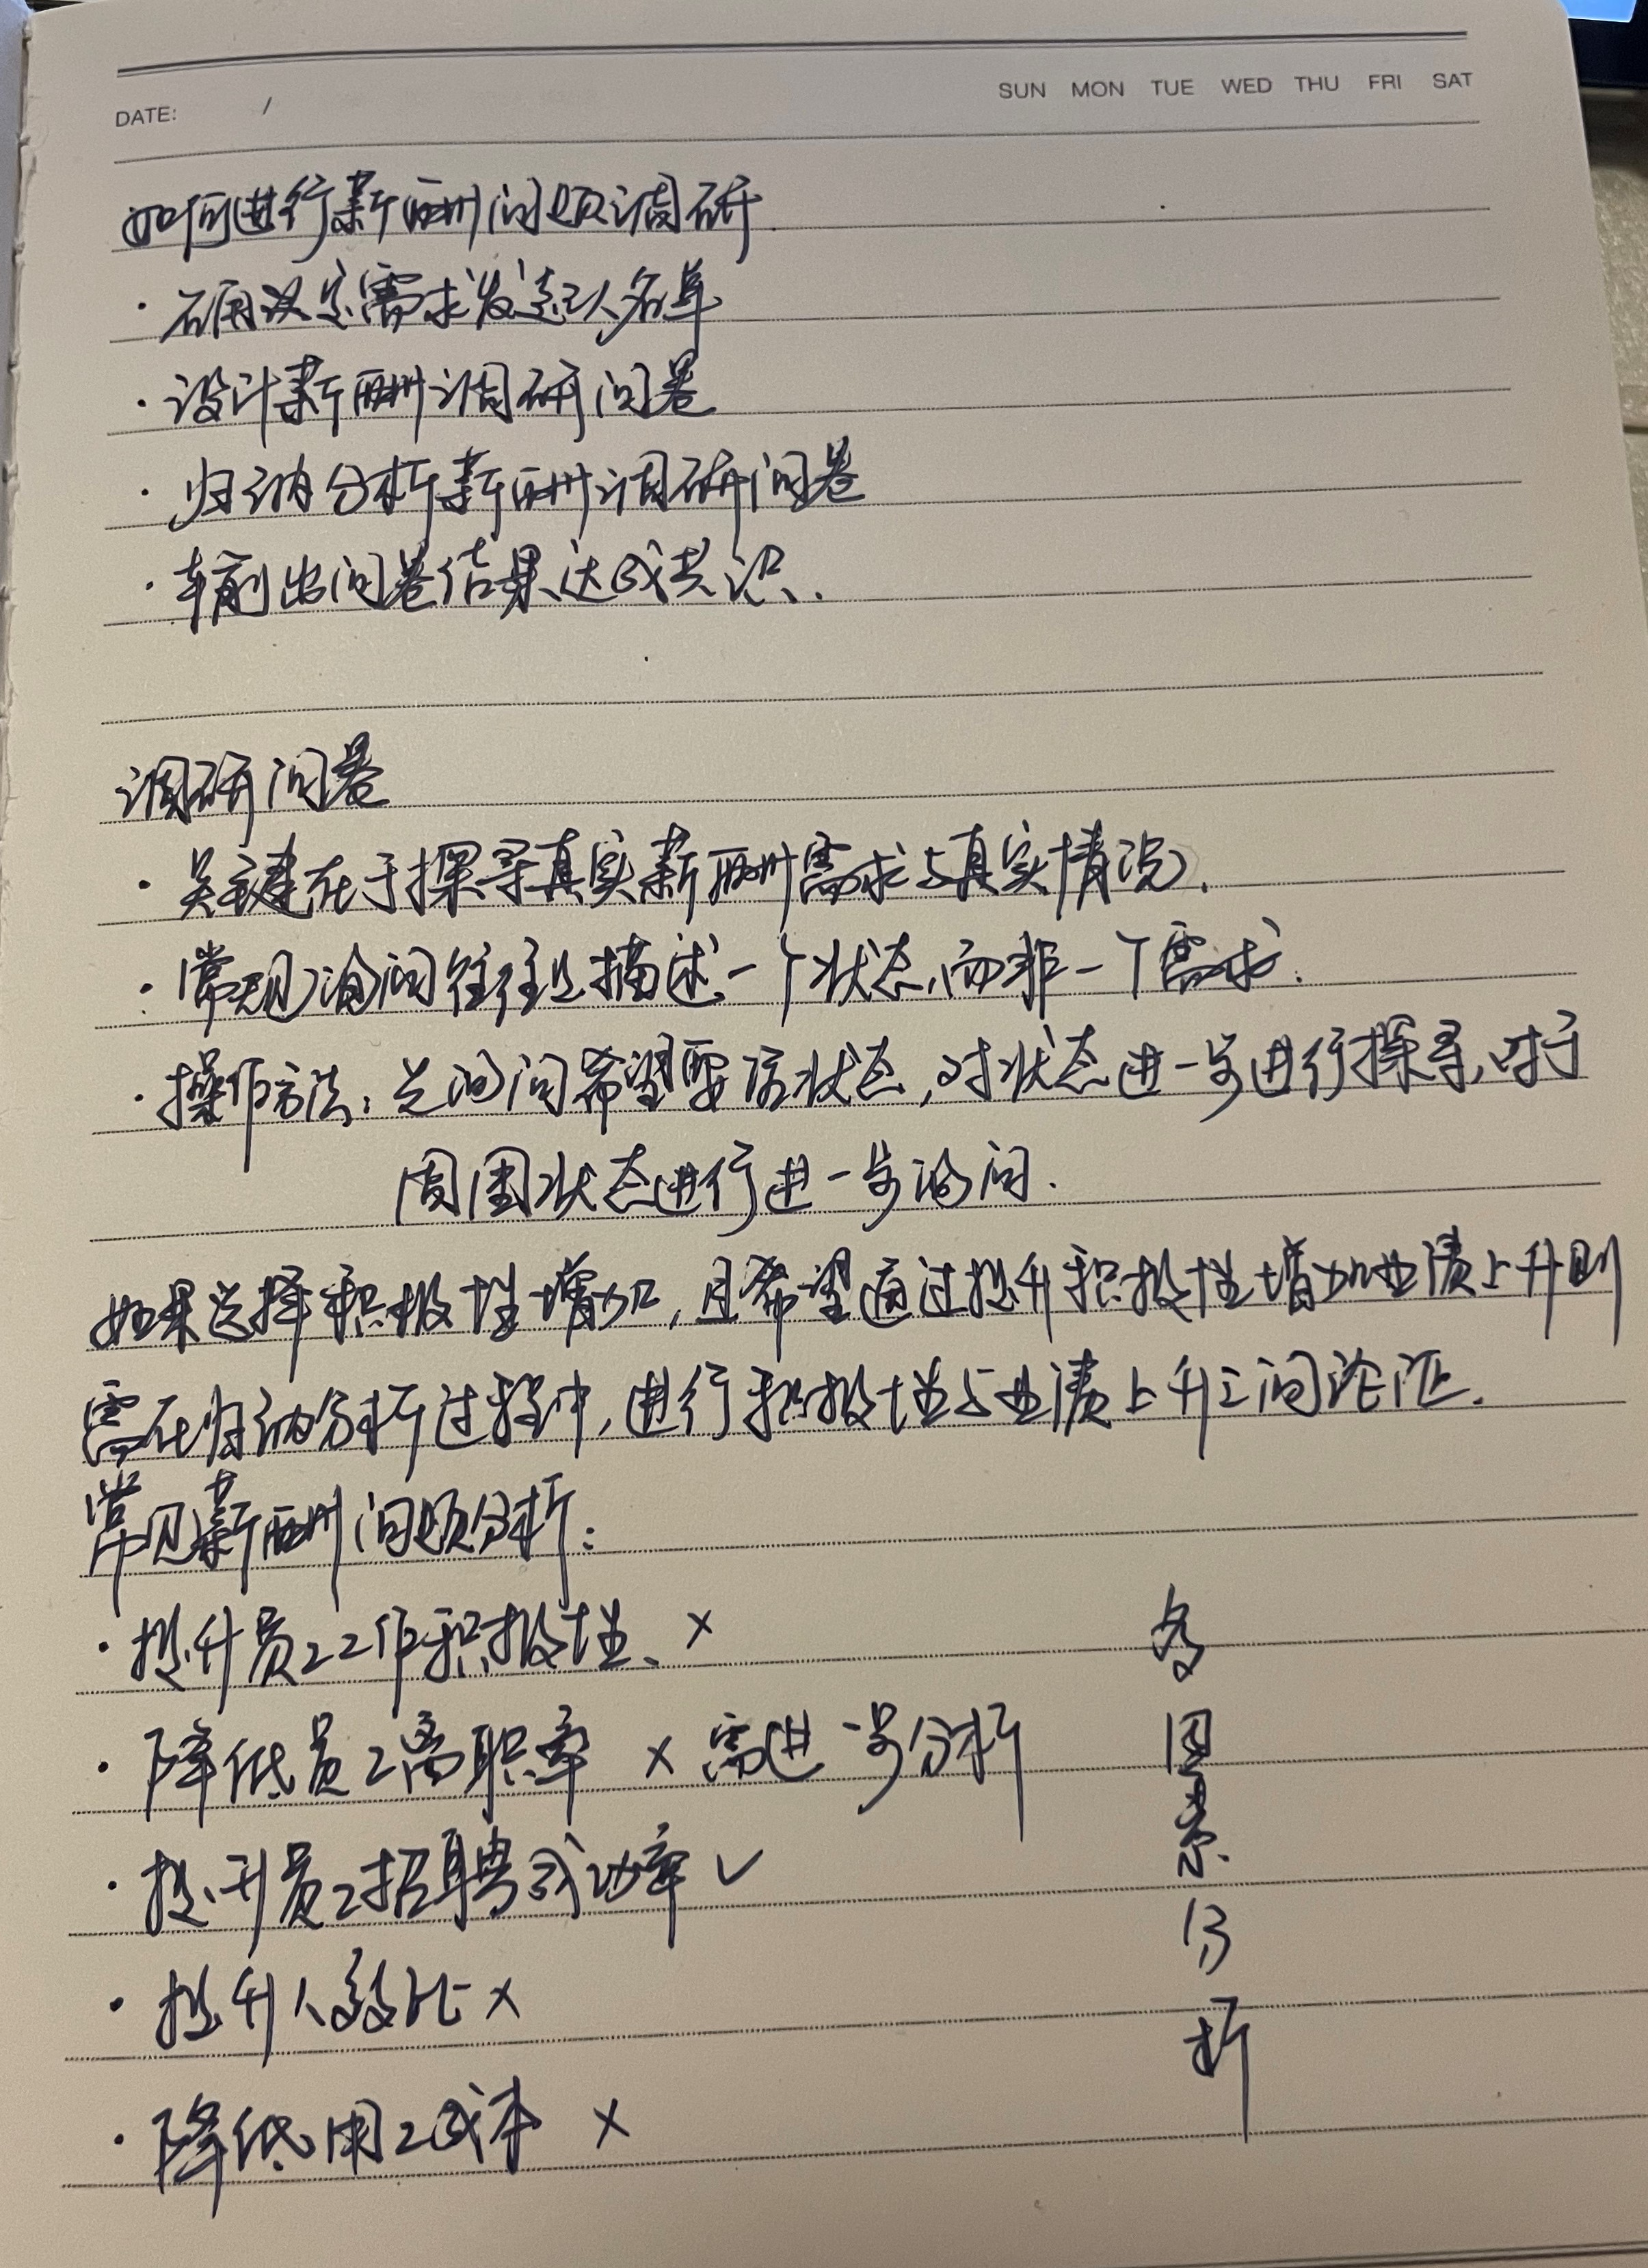 DATE: /
SUN MON TUE WED THU FRI SAT
如何进行薪酬问题调研
· 确认是需求发起人名单
· 设计薪酬调研问卷
· 归纳分析薪酬调研问卷
· 输出问卷结果达成共识.
调研问卷
· 关键在于探寻真实薪酬需求与真实情况.
· 常规询问往往是描述一个状态,而非一个需求.
· 操作方法:先询问希望要啥状态,对状态进一步进行探寻,对于
周围状态进行进一步询问.
如果选择积极性增加,且希望通过提升积极性增加业绩上升则
需在归纳分析过程中,进行积极性与业绩上升之间论证.
常见薪酬问题分析:
· 提升员工工作积极性、×
· 降低员工离职率 × 需进一步分析
· 提升员工招聘成功率 ✓
· 提升人效比 ×
· 降低用工成本 ×
多
因
素
分
析